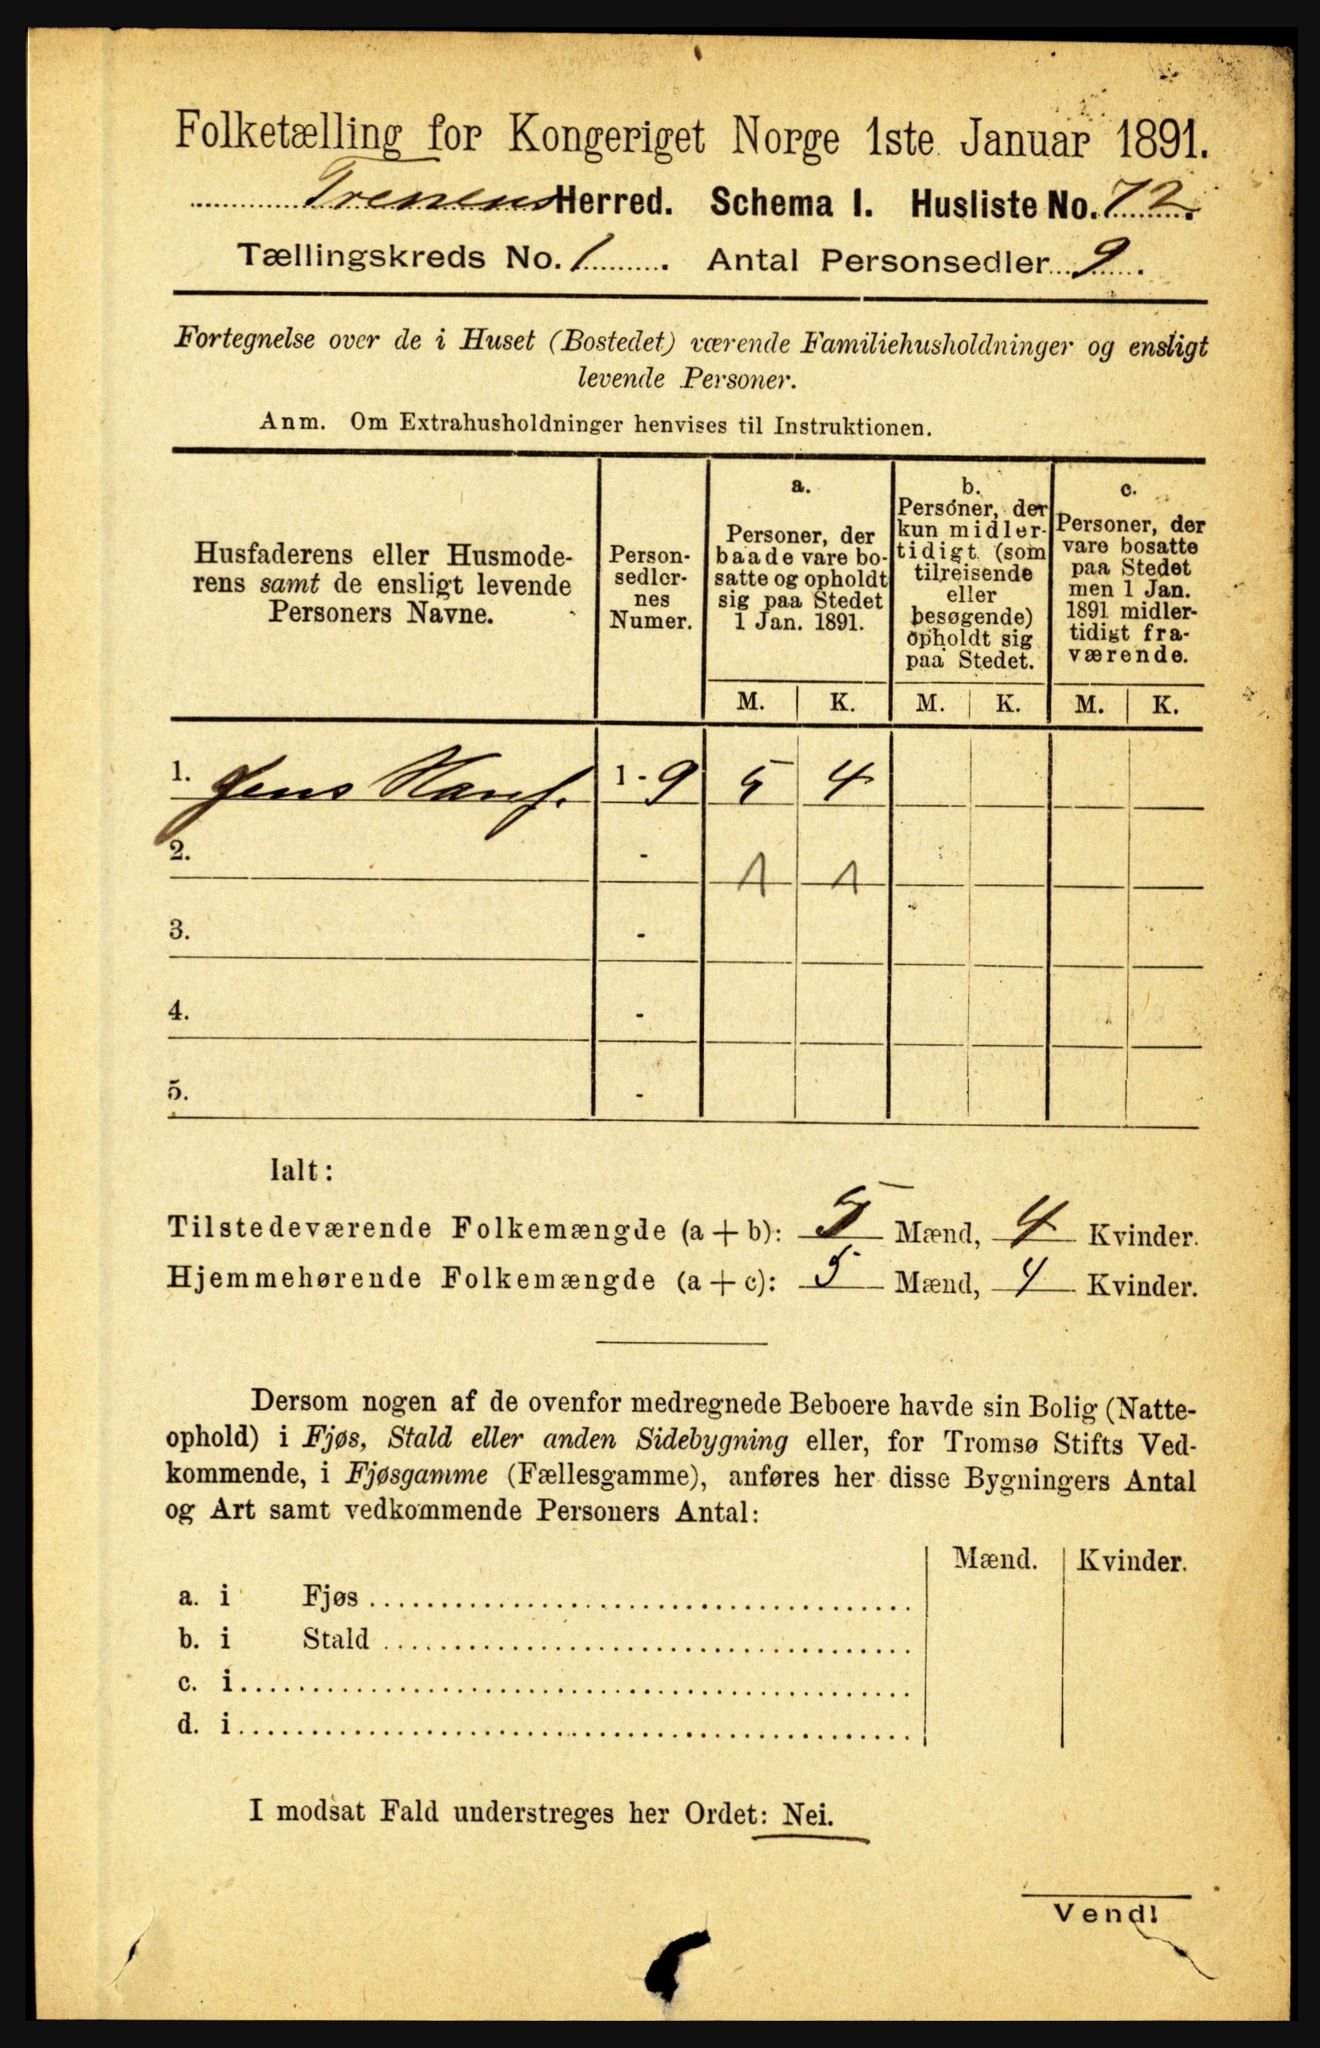 Folketælling for Kongeriget Norge 1ste Januar 1891.
Trenens Herred. Schema I. Husliste No. 72.
Tællingskreds No. 1. Antal Personsedler 9.
Fortegnelse over de i Huset (Bostedet) værende Familiehusholdninger og ensligt
levende Personer.
Anm. Om Extrahusholdninger henvises til Instruktionen.
Husfaderens eller Husmode-
rens samt de ensligt levende
Personers Navne.
Person-
sedler-
nes
Numer.
a.
Personer, der
baade vare bo-
satte og opholdt
sig paa Stedet
1 Jan. 1891.
b.
Personer, der
kun midler-
tidigt (som
tilreisende
eller
besøgende)
opholdt sig
paa Stedet.
c.
Personer, der
vare bosatte
paa Stedet
men 1 Jan.
1891 midler-
tidigt fra-
værende.
M. K. M. K. M. K.
1. Jens Hans. 1 - 9 5 4
2. - 1 1
3. -
4. -
5. -
Ialt:
Tilstedeværende Folkemængde (a + b): 5 Mænd, 4 Kvinder.
Hjemmehørende Folkemængde (a + c): 5 Mænd, 4 Kvinder.
Dersom nogen af de ovenfor medregnede Beboere havde sin Bolig (Natte-
ophold) i Fjøs, Stald eller anden Sidebygning eller, for Tromsø Stifts Ved-
kommende, i Fjøsgamme (Fællesgamme), anføres her disse Bygningers Antal
og Art samt vedkommende Personers Antal:
Mænd. Kvinder.
a. i Fjøs
b. i Stald
c. i
d. i
I modsat Fald understreges her Ordet: Nei.
Vend!